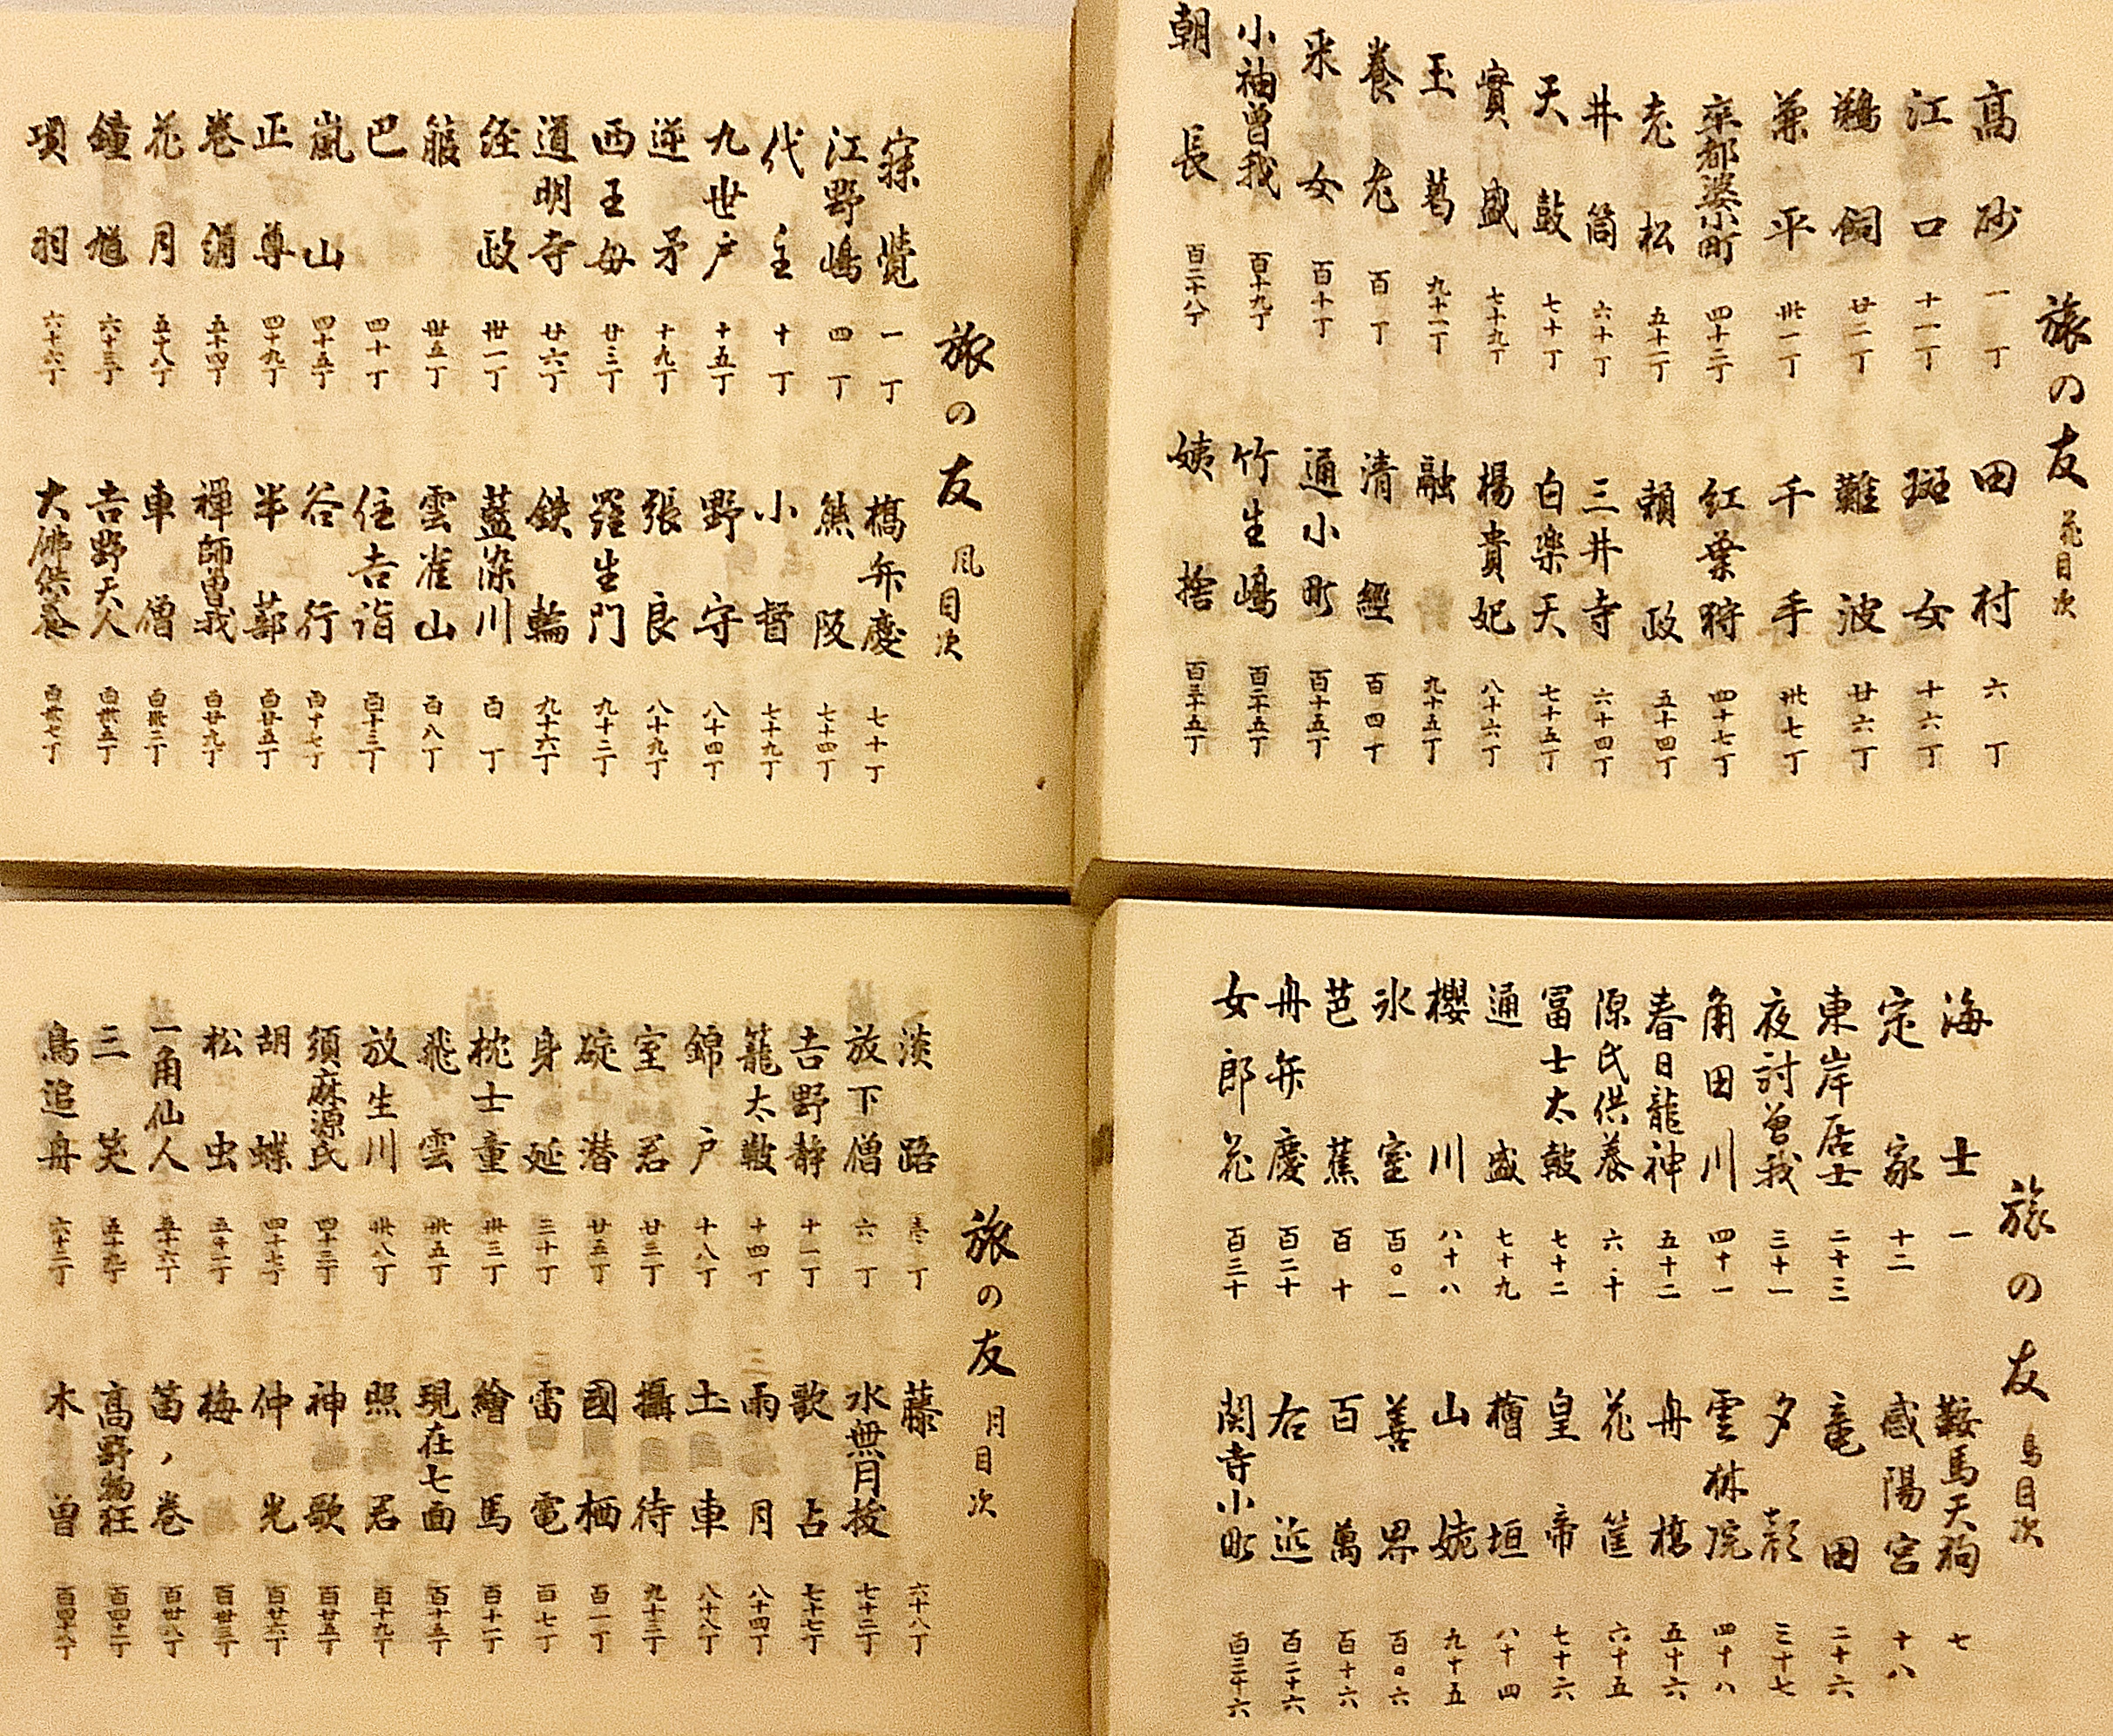 旅の友 花目次
高砂 一丁 田村 六丁
江口 十一丁 斑女 十六丁
鵜飼 廿二丁 難波 廿六丁
兼平 卅一丁 千手 卅七丁
卒都婆小町 四十二丁 紅葉狩 四十七丁
老松 五十一丁 頼政 五十四丁
井筒 六十丁 三井寺 六十四丁
天鼓 七十丁 白楽天 七十五丁
實盛 七十九丁 楊貴妃 八十六丁
玉葛 九十一丁 融 九十五丁
養老 百丁 清經 百四丁
采女 百十丁 通小町 百十五丁
小袖曽我 百十九丁 竹生嶋 百二十五丁
朝長 百二十八丁 姨捨 百三十五丁
旅の友 風目次
寐覚 一丁 橋弁慶 七十丁
江野嶋 四丁 熊阪 七十四丁
代主 十丁 小督 七十九丁
九世戸 十五丁 野守 八十四丁
逆矛 十九丁 張良 八十九丁
西王母 廿三丁 羅生門 九十二丁
道明寺 廿六丁 鉄輪 九十六丁
経政 卅一丁 藍染川 百丁
箙 卅五丁 雲雀山 百八丁
巴 四十丁 住吉詣 百十三丁
嵐山 四十五丁 谷行 百十七丁
正尊 四十九丁 半蔀 百廿五丁
巻絹 五十四丁 禅師曽我 百廿九丁
花月 五十八丁 車僧 百卅二丁
鐘馗 六十三丁 吉野天人 百卅五丁
項羽 六十六丁 大佛供養 百卅七丁
旅の友 鳥目次
海士 一 鞍馬天狗 七
定家 十二 感陽宮 十八
東岸居士 二十三 竜田 二十六
夜討曽我 三十一 夕顔 三十七
角田川 四十一 雲林院 四十八
春日龍神 五十二 舟橋 五十六
源氏供養 六十 花筐 六十五
冨士太鼓 七十二 皇帝 七十六
通盛 七十九 檜垣 八十四
櫻川 八十八 山姥 九十五
氷室 百〇一 善界 百〇六
芭蕉 百十 百萬 百十六
舟弁慶 百二十 右近 百二十六
女郎花 百三十 関寺小町 百三十六
旅の友 月目次
淡路 壱丁 藤 六十八丁
放下僧 六丁 水無月祓 七十二丁
吉野静 十一丁 歌占 七十七丁
籠太鞁 十四丁 雨月 八十四丁
錦戸 十八丁 土車 八十八丁
室君 廿二丁 攝待 九十三丁
碇潜 廿五丁 國栖 百一丁
身延 三十丁 雷電 百七丁
枕士童 卅三丁 繪馬 百十一丁
飛雲 卅五丁 現在七面 百十五丁
放生川 卅八丁 照君 百十九丁
須麻源氏 四十三丁 神歌 百廿五丁
胡蝶 四十七丁 仲光 百廿六丁
松虫 五十二丁 梅 百卅三丁
一角仙人 五十六丁 笛ノ巻 百卅八丁
三笑 五十九丁 高野物狂 百四十一丁
鳥追舟 六十二丁 木曽 百四十八丁